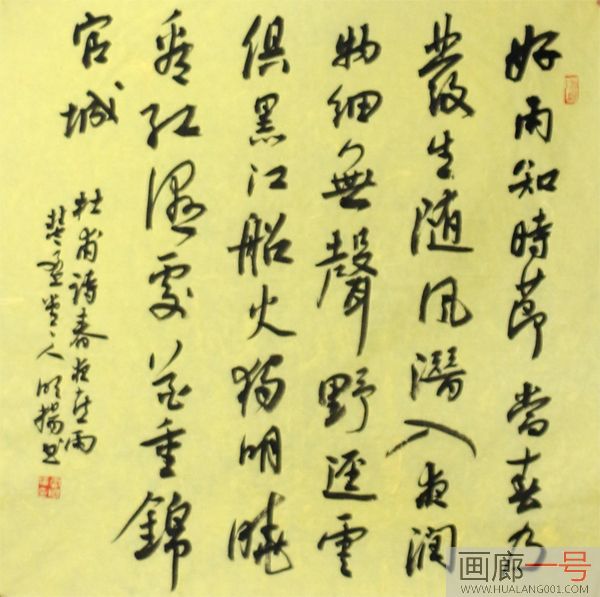 好雨知時節當春乃
發生随风潛入夜潤
物細無聲野逕雲
俱黑江船火獨明曉
看红濕處花重錦
官城
杜甫詩春夜喜雨
人明揚书
画廊一号
WWW.HUALANG001.COM